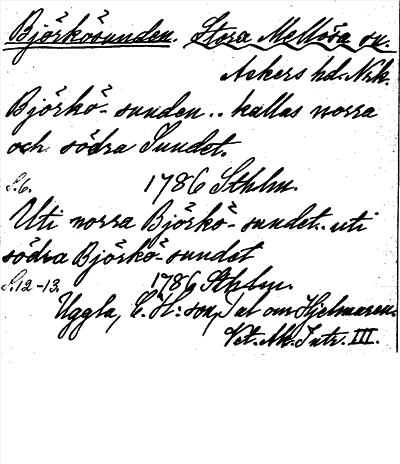 Björkösunden. Stora Mellösa sn.
Askers hd. Nrk.
Björkö-sunden .. kallas norra
och södra Sundet.
S. 6. 1786 Sthlm.
Uti norra Björkö-sundet.. uti
södra Björkö-sundet
S. 12-13. 1786 Sthlm.
Uggla, C. H:son, Tal om Hjelmaren.
Vet. Ak. Intr. III.